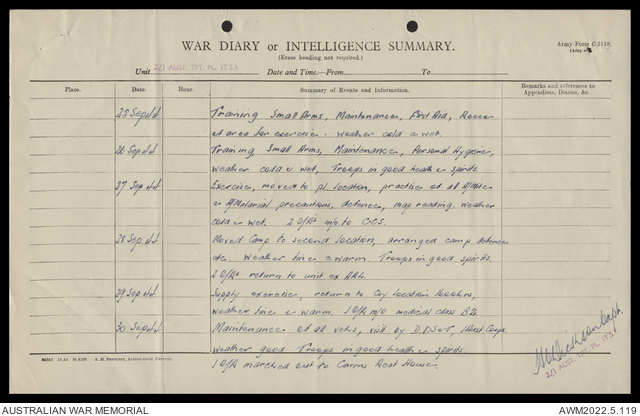 Army Form C.2118.
WAR DIARY or INTELLIGENCE SUMMARY.
(Erase heading not required.)
Unit 2/1 AUST. TPT. PL (T.S.) Date and Time.—From To
Place. Date. Hour. Summary of Events and Information. Remarks and references to Appendices, Diaries, &c.
25 Sep 44 Training Small Arms, Maintenance, First Aid, Recce
of area for exercise. Weather cold & wet.
26 Sep 44 Training Small Arms, Maintenance, Personal Hygiene,
weather cold & wet, Troops in good health & spirits.
27 Sep 44 Exercise, moved to pl. location, practice of all
A/Malarial precautions, defence, map reading. Weather
cold & wet. 2 O/Rs m/o to CCS.
28 Sep 44 Moved Camp to second location, arranged camp defence
etc. Weather fine & warm. Troops in good spirits.
2 O/Rs return to unit ex
29 Sep 44 Supply exercise, return to Coy location
weather fine & warm. 1 O/R m/o medical class B2.
30 Sep 44 Maintenance of all vehs, visit by D.D.S&T, 1 Aust Corps.
Weather good Troops in good health & spirits.
1 O/R marched out to Cairns Rest House.
Capt.
2/1 AUST. TPT. PL (T.S.)
AUSTRALIAN WAR MEMORIAL AWM2022.5.119